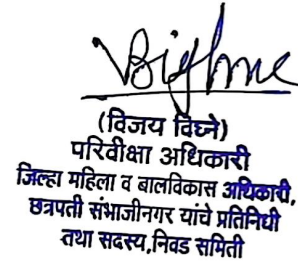 (विजय विघ्ने)
परिवीक्षा अधिकारी
जिल्हा महिला व बालविकास अधिकारी,
छत्रपती संभाजीनगर यांचे प्रतिनिधी
तथा सदस्य,निवड समिती